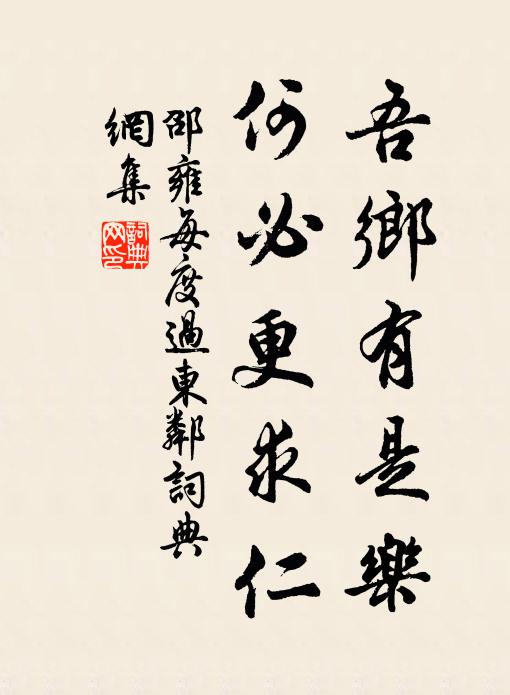 吾鄉有是樂
何必更求仁
邵雍每度過東鄰詞典
網集
詞典
网印